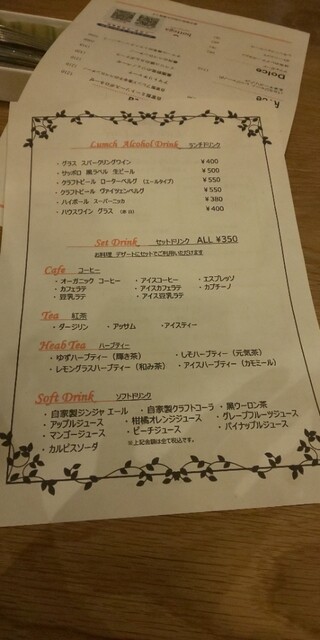 Lunch Alcohol Drink ランチドリンク
・グラス スパークリングワイン ¥400
・サッポロ 黒ラベル 生ビール ¥500
・クラフトビール ローターベルグ (エールタイプ) ¥550
・クラフトビール ヴァイツェンベルグ ¥550
・ハイボール スーパーニッカ ¥380
・ハウスワイン グラス (赤 白) ¥400
Set Drink セットドリンク ALL ¥350
お料理 デザートにセットでご利用いただけます
Cafe コーヒー
・オーガニック コーヒー ・アイスコーヒー ・エスプレッソ
・カフェラテ ・アイスカフェラテ ・カプチーノ
・豆乳ラテ ・アイス豆乳ラテ
Tea 紅茶
・ダージリン ・アッサム ・アイスティー
Heab Tea ハーブティー
・ゆずハーブティー (輝き茶) ・しそハーブティー (元気茶)
・レモングラスハーブティー (和み茶) ・アイスハーブティー (カモミール)
Soft Drink ソフトドリンク
・自家製ジンジャ エール ・自家製クラフトコーラ ・黒ウーロン茶
・アップルジュース ・柑橘オレンジジュース ・グレープフルーツジュース
・マンゴージュース ・ピーチジュース ・パイナップルジュース
・カルピスソーダ ※上記金額は全て税込です。
Dolce